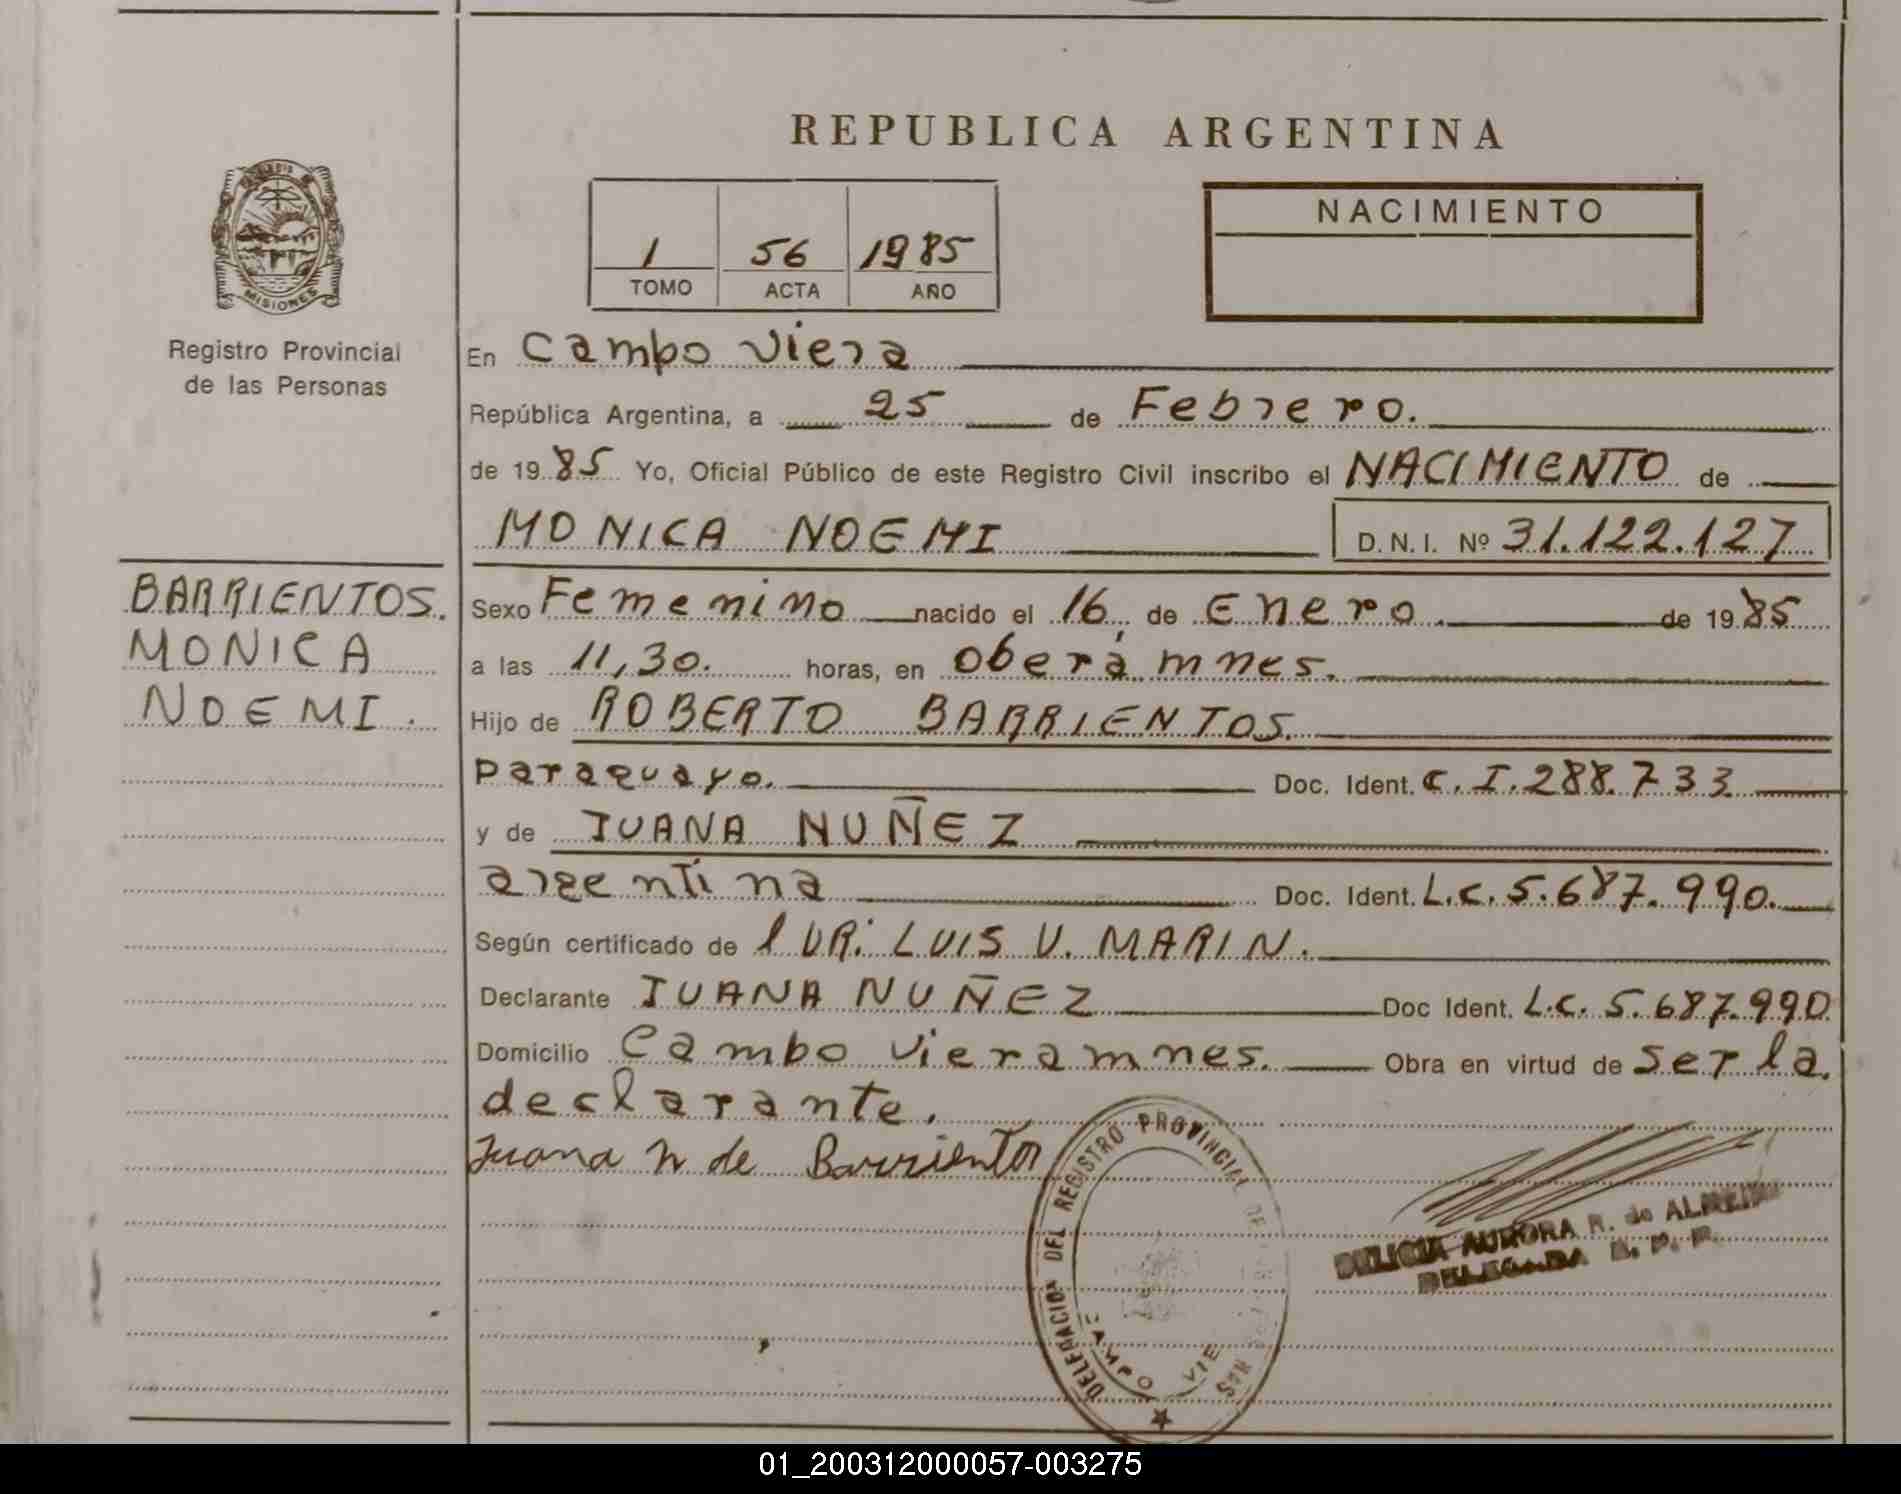 REPUBLICA ARGENTINA
MISIONES
Registro Provincial
de las Personas
1 56 1985
TOMO ACTA AÑO
NACIMIENTO
En Campo Viera
República Argentina, a 25 de Febrero.
de 19 85 Yo, Oficial Público de este Registro Civil inscribo el NACIMIENTO de
MONICA NOEMI D.N.I. Nº 31.122.127
BARRIENTOS.
MONICA
NOEMI.
Sexo Femenino nacido el 16 de Enero. de 19 85
a las 11,30. horas, en Oberá mnes.
Hijo de ROBERTO BARRIENTOS.
paraguayo. Doc. Ident. C.I. 288.733
y de JUANA NUÑEZ
argentina Doc. Ident. L.C. 5.687.990.
Según certificado de l DR: LUIS V. MARIN.
Declarante JUANA NUÑEZ Doc Ident. L.C. 5.687.990
Domicilio Campo Viera mnes. Obra en virtud de ser la
declarante.
Juana N de Barrientos
DELEGACION DEL REGISTRO PROVINCIAL DE
CAMPO VIE
DELICIA AURORA R. de ALMEIDA
DELEGADA R. P. P.
01_200312000057-003275